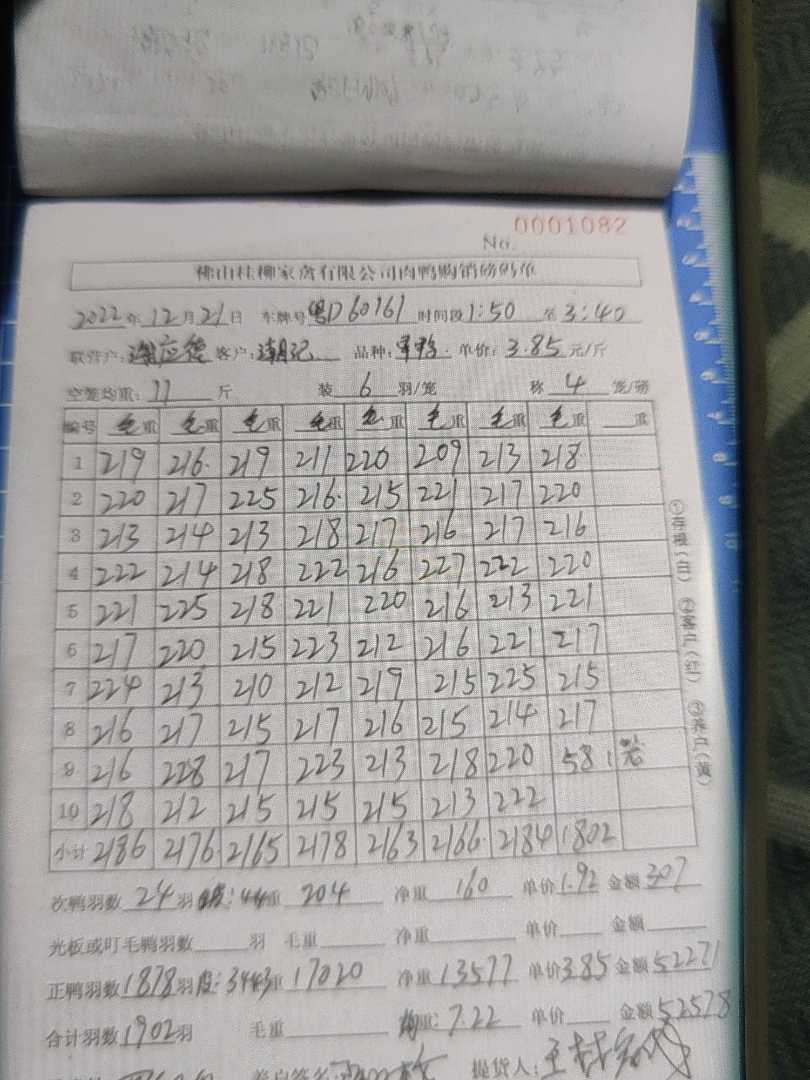 No. 0001082
佛山桂柳家禽有限公司肉鸭购销磅码单
2022年12月21日 车牌号粤D60161 时间段1:50至3:40
联营户:谢应德 客户:潮记 品种: 单价:3.85元/斤
空笼均重:11斤 装6羽/笼 称4笼/磅
编号 毛重 毛重 毛重 毛重 毛重 毛重 毛重 毛重 重
1 219 216 219 211 220 209 213 218
2 220 217 225 216 215 221 217 220
3 213 214 213 218 217 216 217 216
4 222 214 218 222 216 227 222 220
5 221 225 218 221 220 216 213 221
6 217 220 215 223 212 216 221 217
7 224 213 210 212 219 215 225 215
8 216 217 215 217 216 215 214 217
9 216 228 217 223 213 218 220 58
10 218 212 215 215 215 213 222
小计 2186 2176 2165 2178 2163 2166 2184 1802
①存根(白) ②客户(红) ③养户(黄)
次鸭羽数24羽 皮:44 重204 净重160 单价1.92 金额307
光板或叮毛鸭羽数 羽 毛重 净重 单价 金额
正鸭羽数1878羽 皮:3443 重17020 净重13577 单价3.85 金额52271
合计羽数1902羽 毛重 均重:7.22 单价 金额52578
养户签名: 提货人: